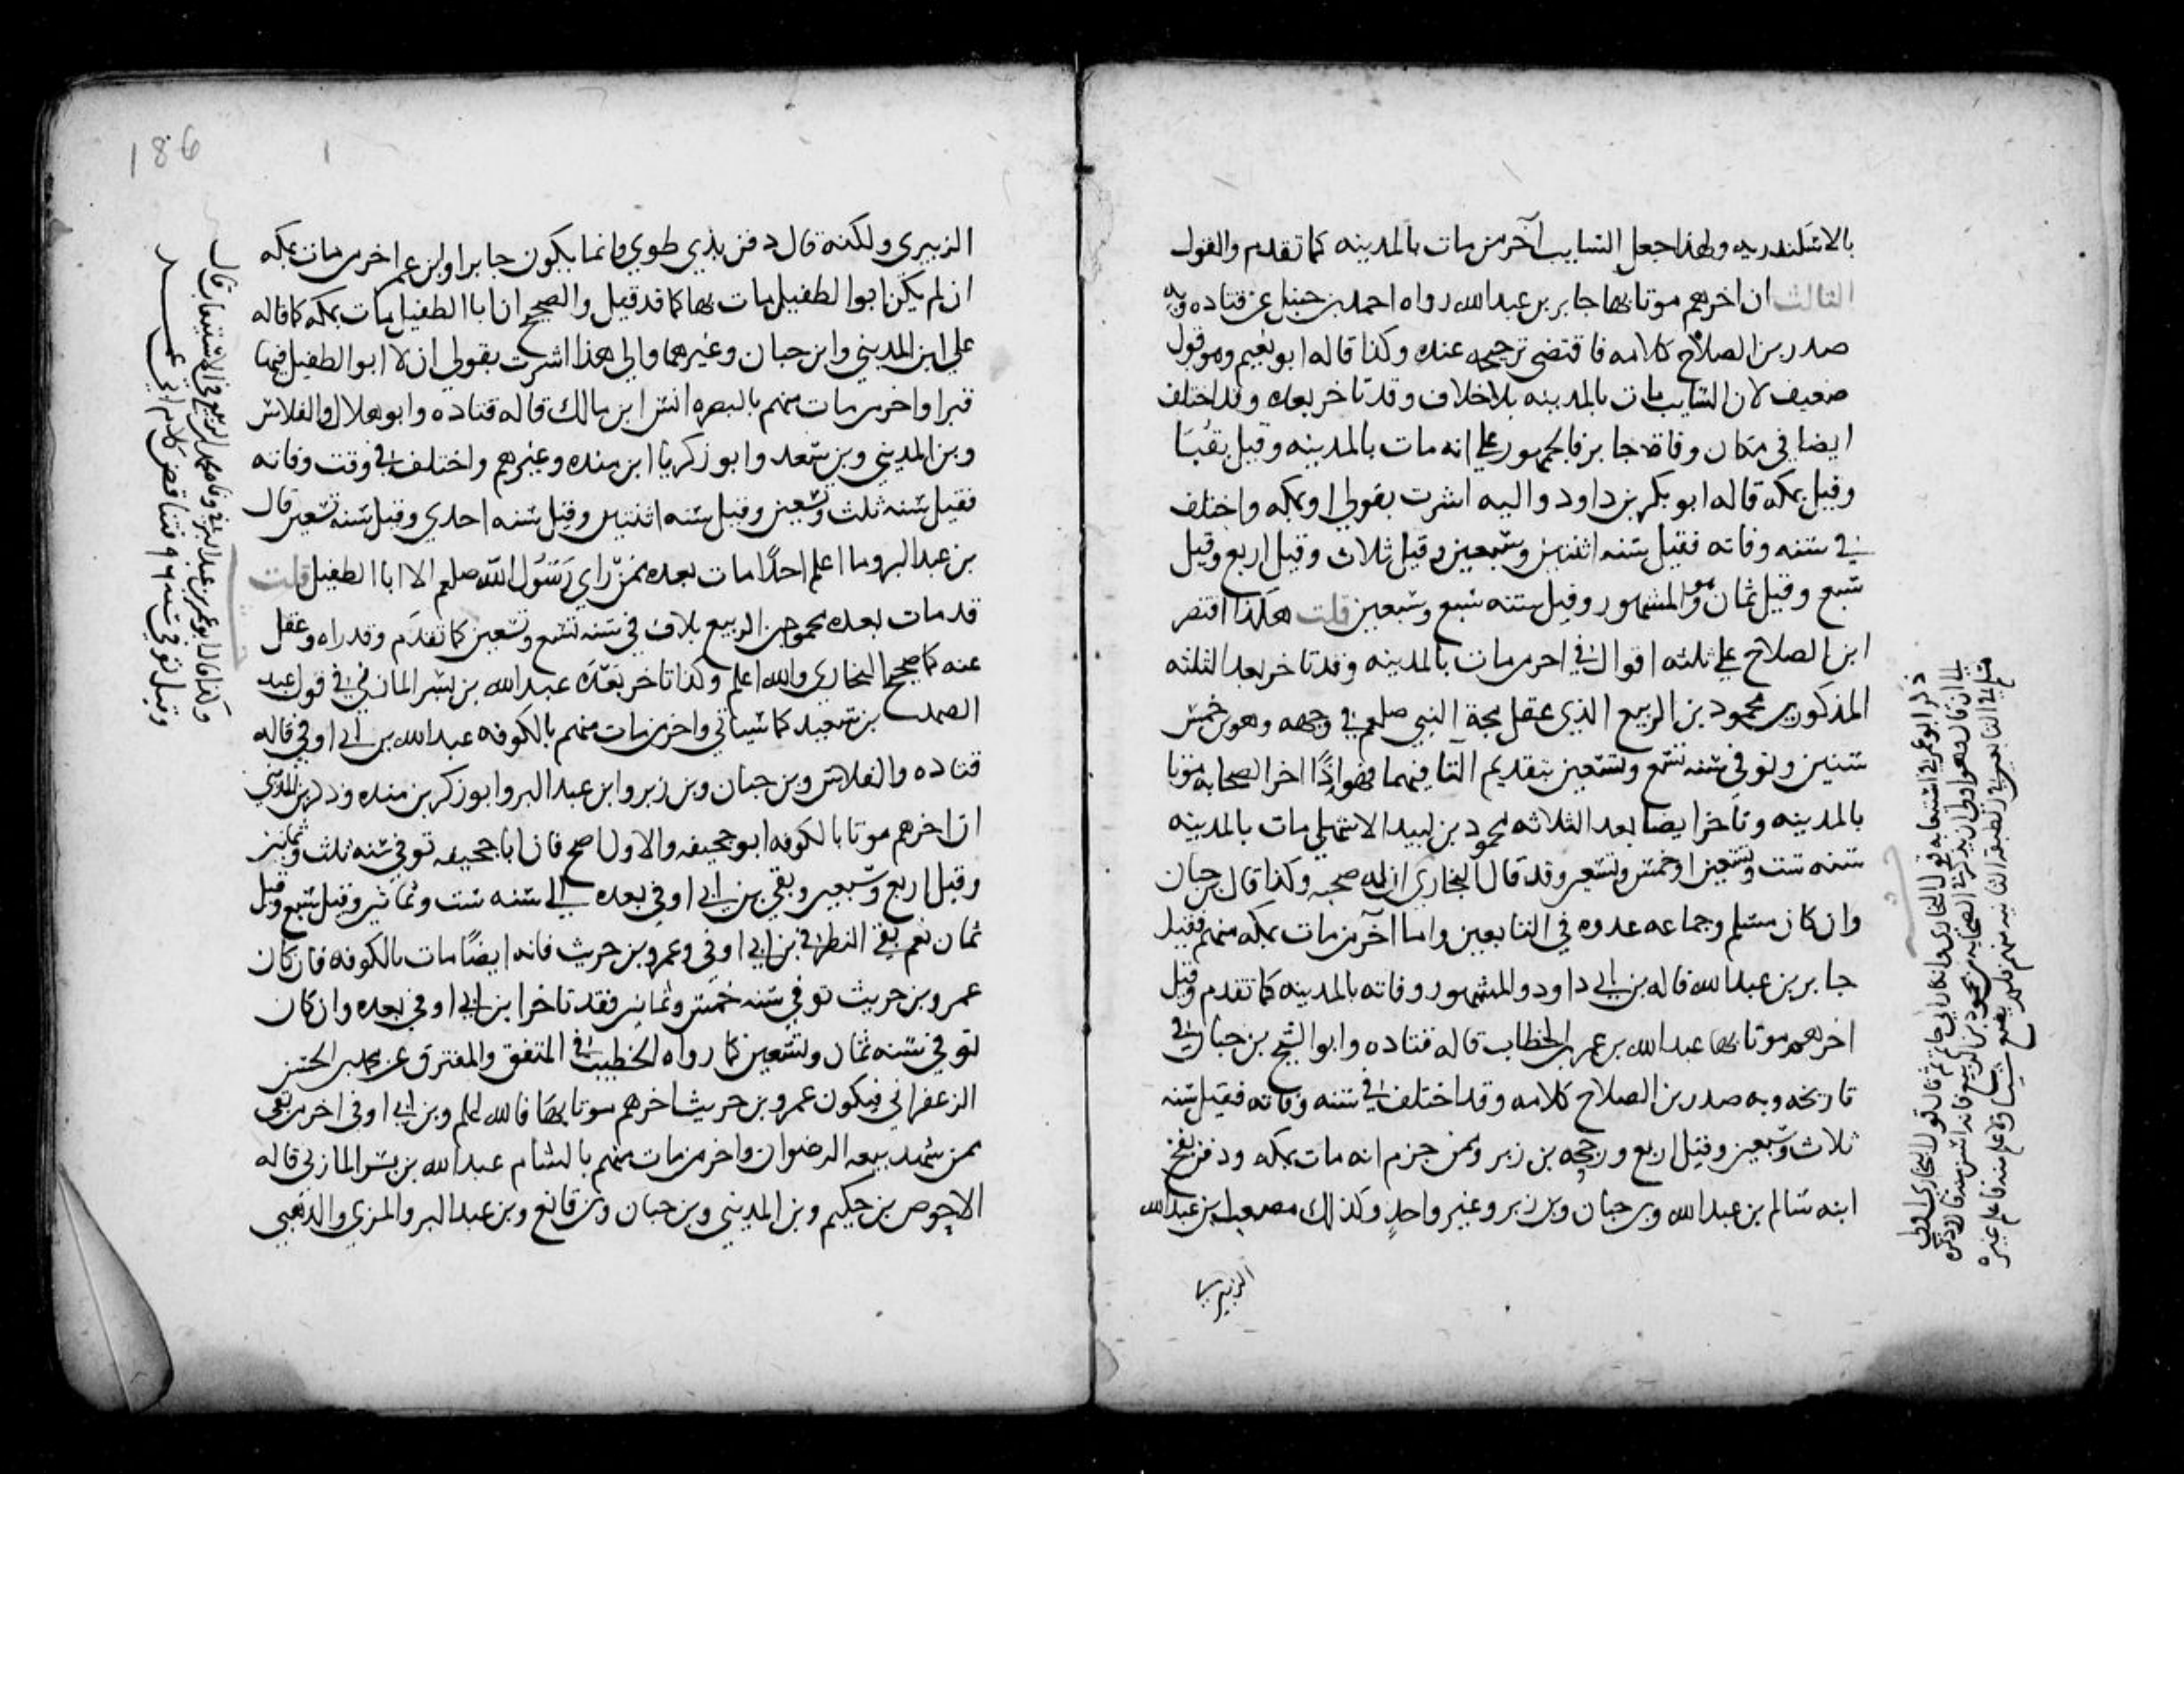 بالاسكندريه ولهذا جعل السايب آخر من مات بالمدينه كما تقدم والقول
الثالث ان اخرهم موتا بها جابر بن عبد الله رواه احمد بن حنبل عن قتاده وبه
صدر بن الصلاح كلامه فاقتضى ترجيحه عنده وكذا قاله ابو نعيم وهو قول
ضعيف لان السايب مات بالمدينه بلا خلاف وقد تاخر بعده وقد اختلف
ايضا في مكان وفاة جابر فالجمهور على انه مات بالمدينه وقيل بقبا
وقيل بمكه قاله ابو بكر بن داود واليه اشرت بقولي او بمكه واختلف
في سنه وفاته فقيل سنه اثنتين وسبعين وقيل ثلاث وقيل اربع وقيل
سبع وقيل ثمان وهو المشهور وقيل سنه تسع وسبعين قلت هكذا اقتصر
ابن الصلاح على ثلثه اقوال في اخر من مات بالمدينه وقد تاخر بعد الثلثه
المذكورين محمود بن الربيع الذي عقل مجة النبي صلعم في وجهه وهو بن خمس
سنين وتوفي سنه تسع وتسعين بتقديم التا فيهما فهو اذًا اخر الصحابه موتا
بالمدينه وتاخر ايضا بعد الثلاثه محمود بن لبيد الاشهلي مات بالمدينه
سنه ست وتسعين او خمس وتسعين وقد قال البخاري ان له صحبه وكذا قال بن حبان
وان كان مسلم وجماعه عدوه في التابعين واما آخر من مات بمكه منهم فقيل
جابر بن عبد الله قاله بن ابي داود والمشهور وفاته بالمدينه كما تقدم وقيل
اخرهم موتا بها عبد الله بن عمر بن الخطاب قاله قتاده وابو الشيخ بن حبان في
تاريخه وبه صدر بن الصلاح كلامه وقد اختلف في سنه وفاته فقيل سنه
ثلاث وسبعين وقيل اربع ورجحه بن زبر وممن جزم انه مات بمكه ودفن بفخ
ابنه سالم بن عبد الله وبن حبان وبن زبر وغير واحدٍ وكذلك مصعب بن عبد الله
الزبيري
ذكر ابو عمر في استيعابه قول البخاري وانكار ابي حاتم ثم قال قول البخاري اولى
مسلم في التابعين في الطبقه الثانيه منهم فلم يصنع شيا ولا علم منه ما علم غيره
186
الزبيري ولكنه قال دفن بذي طوي وانما يكون جابر او بن عمر اخر من مات بمكه
ان لم يكن ابو الطفيل مات بها كما قد قيل والصحيح ان ابا الطفيل مات بمكه كما قاله
علي ابن المديني وابن حبان وغيرهما والى هذا اشرت بقولي ان لا ابو الطفيل فيها
قبرا واخر من مات منهم بالبصره انس ابن مالك قاله قتاده وابو هلال والفلاس
وبن المديني وبن سعد وابو زكريا ابن منده وغيرهم واختلف في وقت وفاته
فقيل سنه ثلث وتسعين وقيل سنه اثنتين وقيل سنه احدي وقيل سنه تسعين قال
بن عبد البر وما اعلم احدًا مات بعده ممن راي رَسُول الله صلعم الا ابا الطفيل قلت
قد مات بعده محمود بن الربيع بلا في سنه تسع وتسعين كما تقدم وقد راه وعقل
عنه كما صحيح البخاري والله اعلم وكذا تاخر بعده عبد الله بن بسر المازني في قول عبد
الصمد بن سعيد كما سياتي واخر من مات منهم بالكوفه عبد الله بن ابي اوفي قاله
قتاده والفلاس وبن حبان وبن زبر وابن عبد البر وابو زكر بن منده وذكر بن المديني
ان اخرهم موتا بالكوفه ابو جحيفه والاول اصح فان ابا جحيفه توفي سنه ثلث وثمانين
وقيل اربع وسبعين وبقي بن ابي اوفي بعده الى سنه ست وثمانين وقيل سبع وقيل
ثمان نعم بقي النظر في بن ابي اوفي وعمرو بن حريث فانه ايضًا مات بالكوفه فان كان
عمرو بن حريث توفي سنه خمس وثمانين فقد تاخر ابن ابي اوفي بعده وان كان
توفي سنه ثمان وتسعين كما رواه الخطيب في المتفق والمفترق عن محمد بن الحسن
الزعفراني فيكون عمرو بن حريث اخرهم موتا بها فالله اعلم وبن ابي اوفي اخر من بقي
ممن شهد بيعه الرضوان واخر من مات منهم بالشام عبد الله بن بسر المازني قاله
الاحوص بن حكيم وبن المديني وبن حبان وبن قانع وبن عبد البر والمزي والذهبي
وكذا قال ابو عمر بن عبد البر في وفاه محمود بن الربيع في الاستيعاب قال
وقيل توفي سنه ٩٦ فتناقض كلام ابي عمر